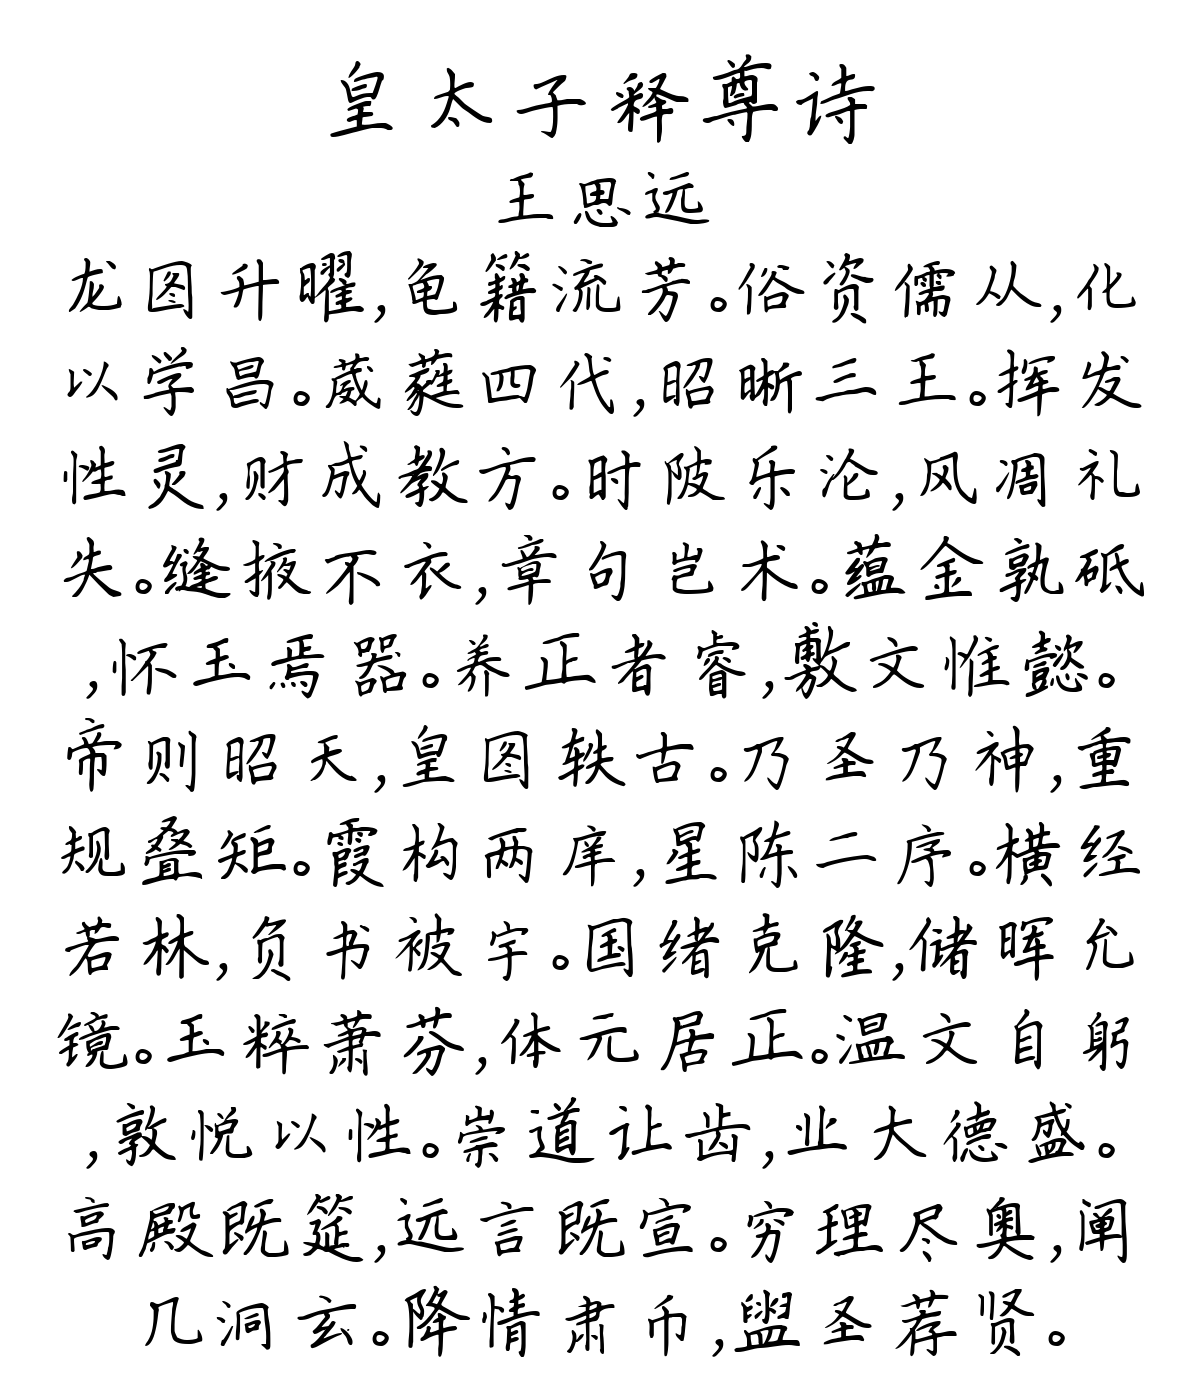 皇太子释尊诗
王思远
龙图升曜,龟籍流芳。俗资儒从,化
以学昌。葳蕤四代,昭晰三王。挥发
性灵,财成教方。时陂乐沦,风凋礼
失。缝掖不衣,章句岂术。蕴金孰砥
,怀玉焉器。养正者睿,敷文惟懿。
帝则昭天,皇图轶古。乃圣乃神,重
规叠矩。霞构两庠,星陈二序。横经
若林,负书被宇。国绪克隆,储晖允
镜。玉粹萧芬,体元居正。温文自躬
,敦悦以性。崇道让齿,业大德盛。
高殿既筵,远言既宣。穷理尽奥,阐
几洞玄。降情肃币,盥圣荐贤。